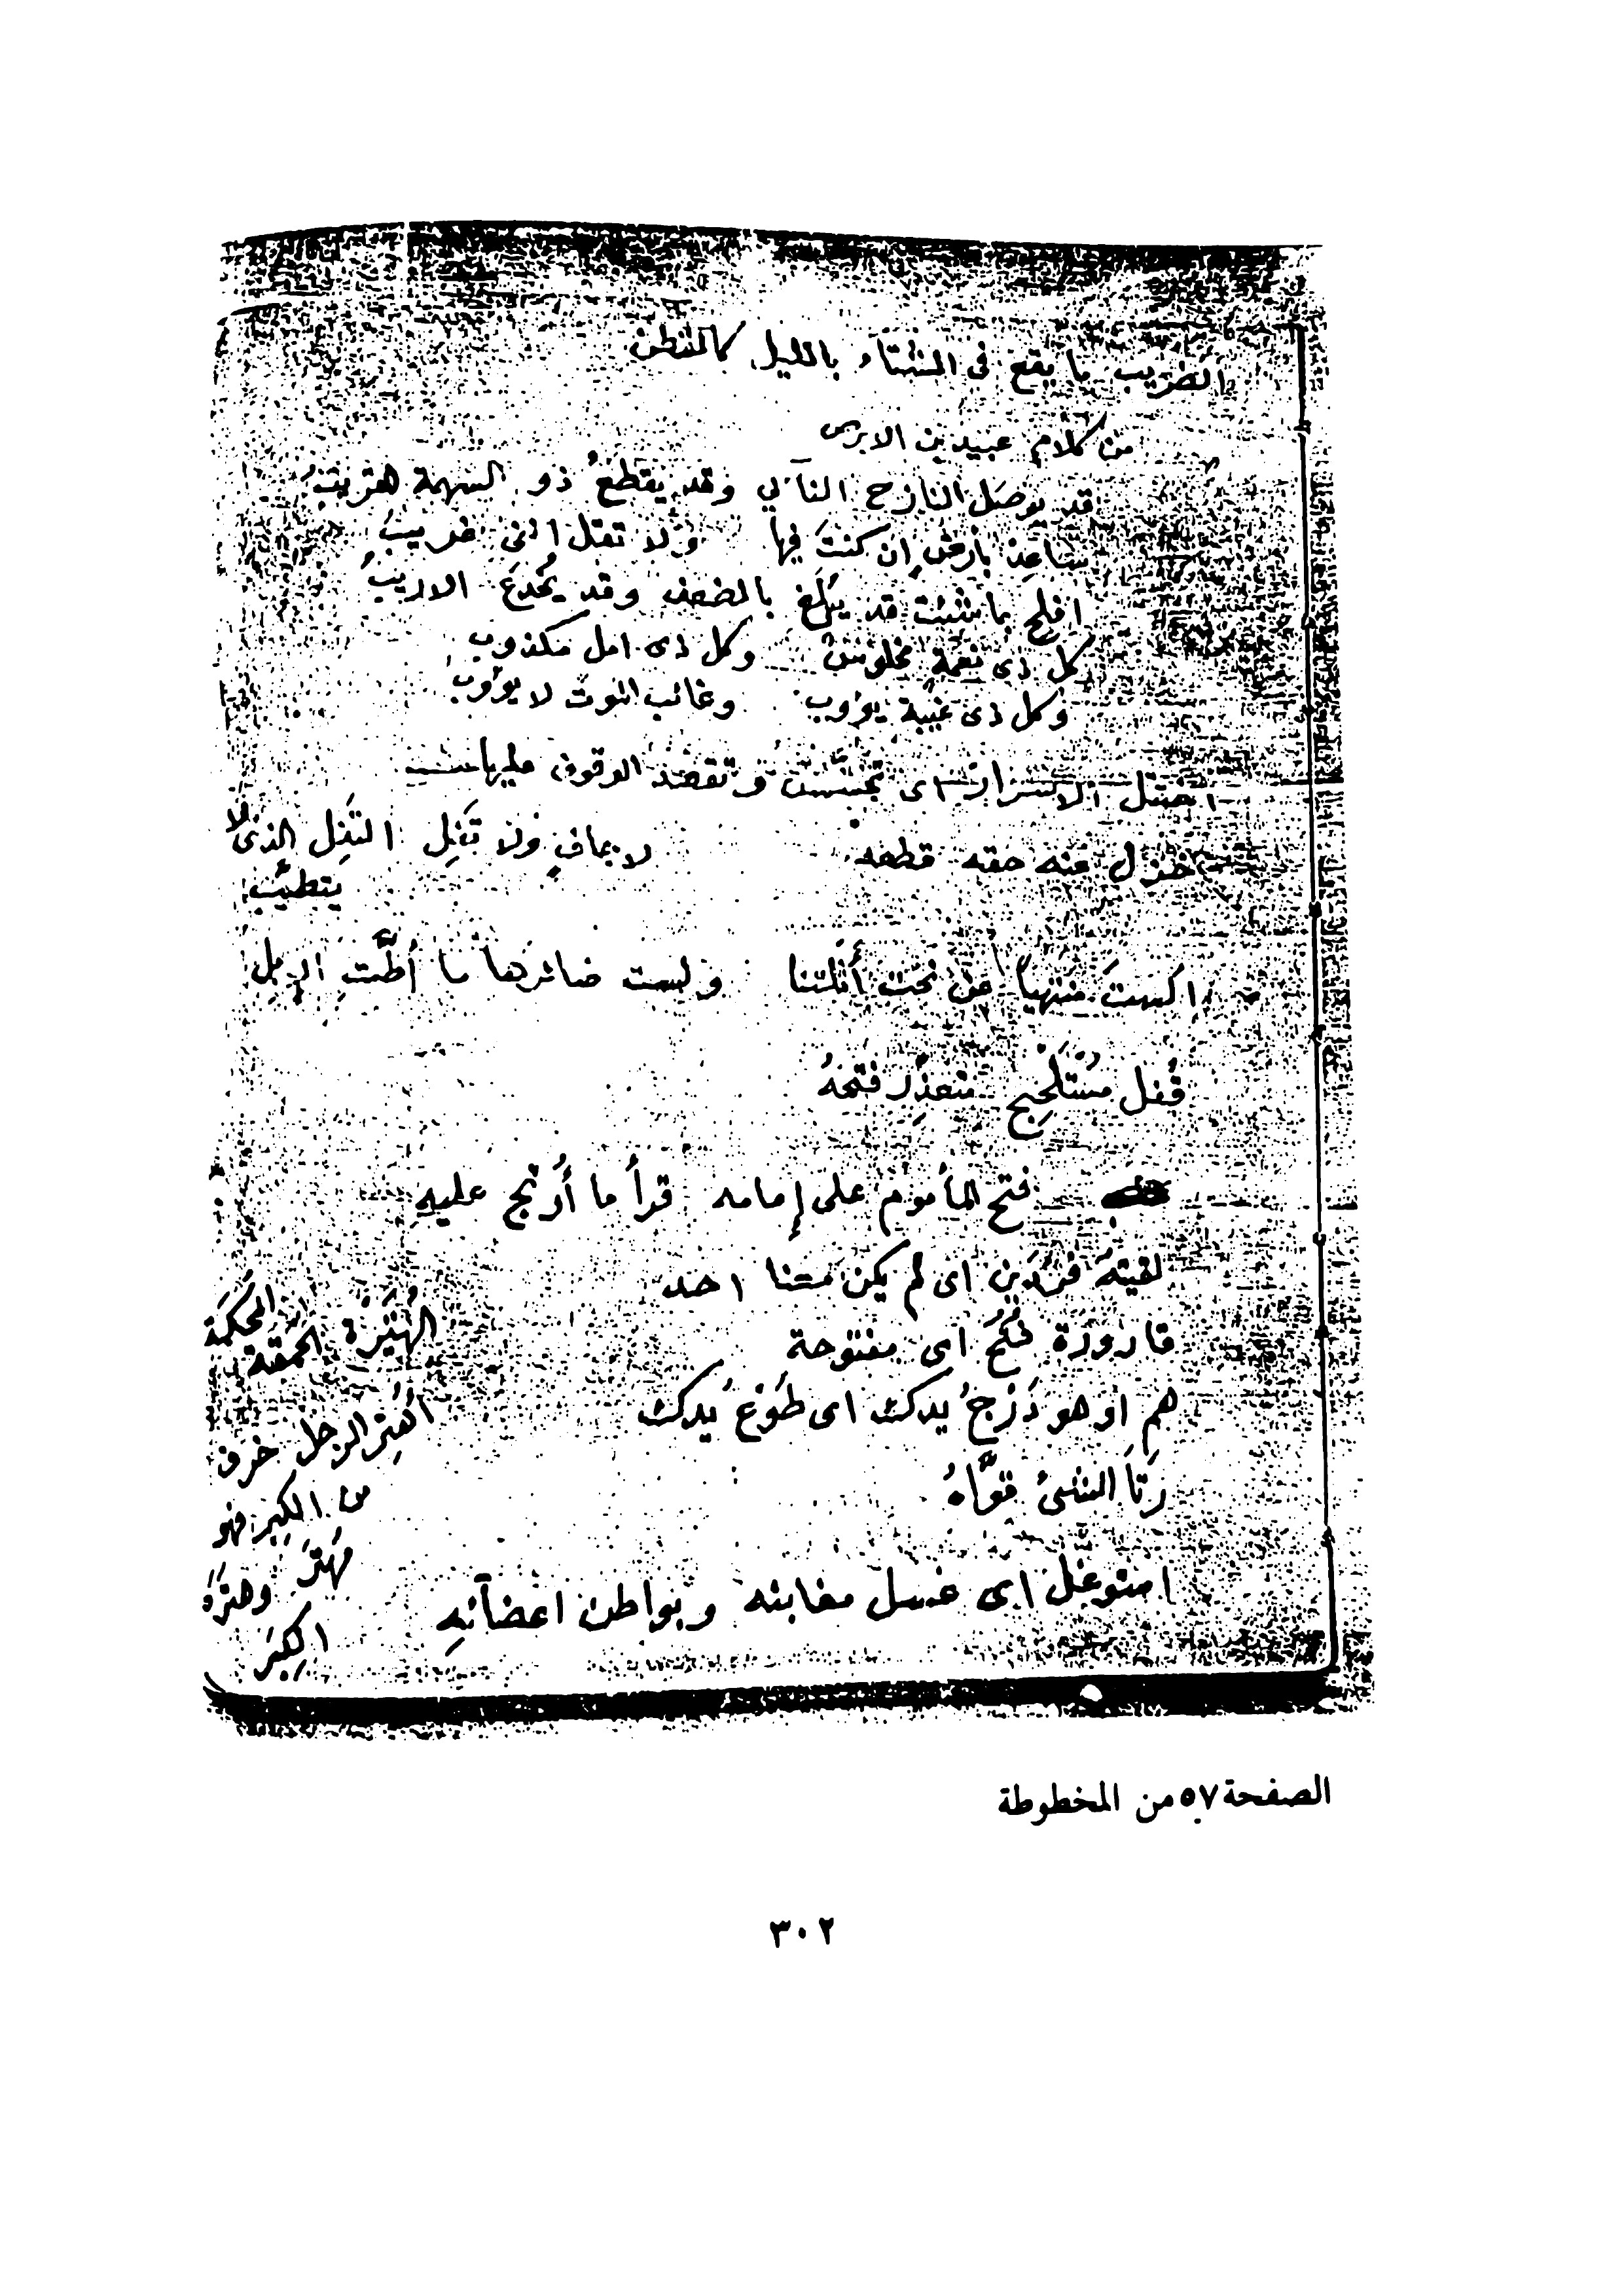 الضريب ما يقع فى الشتاء بالليل كالقطن
من كلام عبيد بن الابرص
قد يوصل النازح النآئي وقد يقطعُ ذو السهمة القريبُ
ساعِد بأرضٍ ان كنتَ فيها ولا تقل اننى غريبُ
افلح بما شئت قد يبلغ بالضعف وقد يُخدعَ الاريبُ
وكل ذى نعمة مخلوس وكل ذى امل مكذوب
وكل ذى غيبة يؤوب وغائب الموت لا يؤوب
الاسرار اى تجسّس وتقصّد الوقوف عليها
خزل عنه حقه قطعه
لا بماف ولا تَفِل التَفِل الذى لا
يتطيّب
الستَ منتهياً عن نحت أثلتنا ولست ضائرها ما أطَّتِ الإبل
قُفل مُسْتَلْحِج متعذِّر فتحُهُ
فتح المأموم على إمامه قرأ ما أُرتج عليهِ
لقيتهُ فَرْدَين اى لم يكن معنا احد
قارورة فُتُحٌ اى مفتوحة
هم او هو دَرْجُ يدك اى طَوْعُ يدك
رَتَا الشئ قوَّاهُ
استوغل اى غسل مغابنه وبواطن اعضآئهِ
الهُتْرَة الحمقة المُحكَمة
اُهتِر الرجل خرف
من الكِبَر فهو
مُهتَر وهترهُ
الكِبَر
الصفحة ٥٧ من المخطوطة
٣٠٢